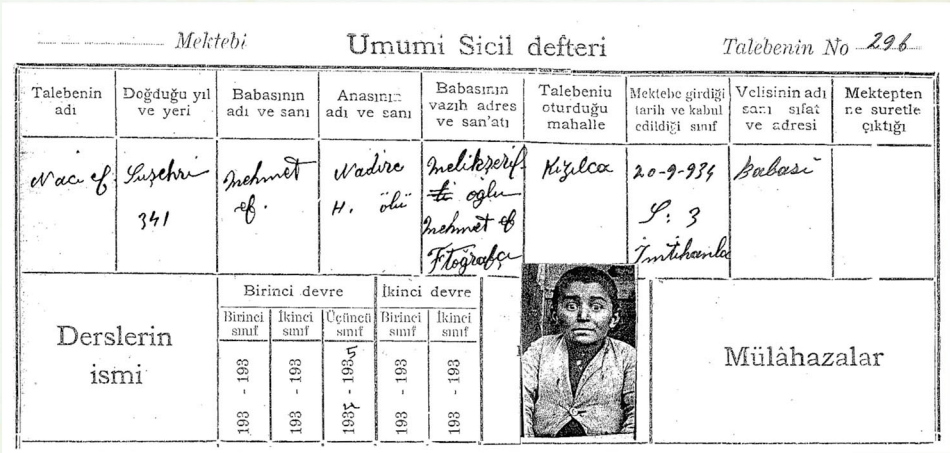 Mektebi
Umumi Sicil defteri
Talebenin No 296
Talebenin
adı
Doğduğu yıl
ve yeri
Babasının
adı ve sanı
Anasının
adı ve sanı
Babasının
vazıh adres
ve san'atı
Talebeniu
oturduğu
mahalle
Mektebe girdiği
tarih ve kabul
edildiği sınıf
Velisinin adı
sanı sıfat
ve adresi
Mektepten
ne suretle
çıktığı
Naci ef.
Suşehri
341
Mehmet
ef.
Nadire
H. ölü
Melikşerif
oğlu
Mehmet ef
Ftoğrafçı
Kizilca
20-9-934
S: 3
İmtihanla
Babasi
Derslerin
ismi
Birinci devre
İkinci devre
Birinci
sınıf
İkinci
sınıf
Üçüncü
sınıf
Birinci
sınıf
İkinci
sınıf
193 - 193
193 - 193
193 - 1935
193 - 193
193 - 193
Mülâhazalar